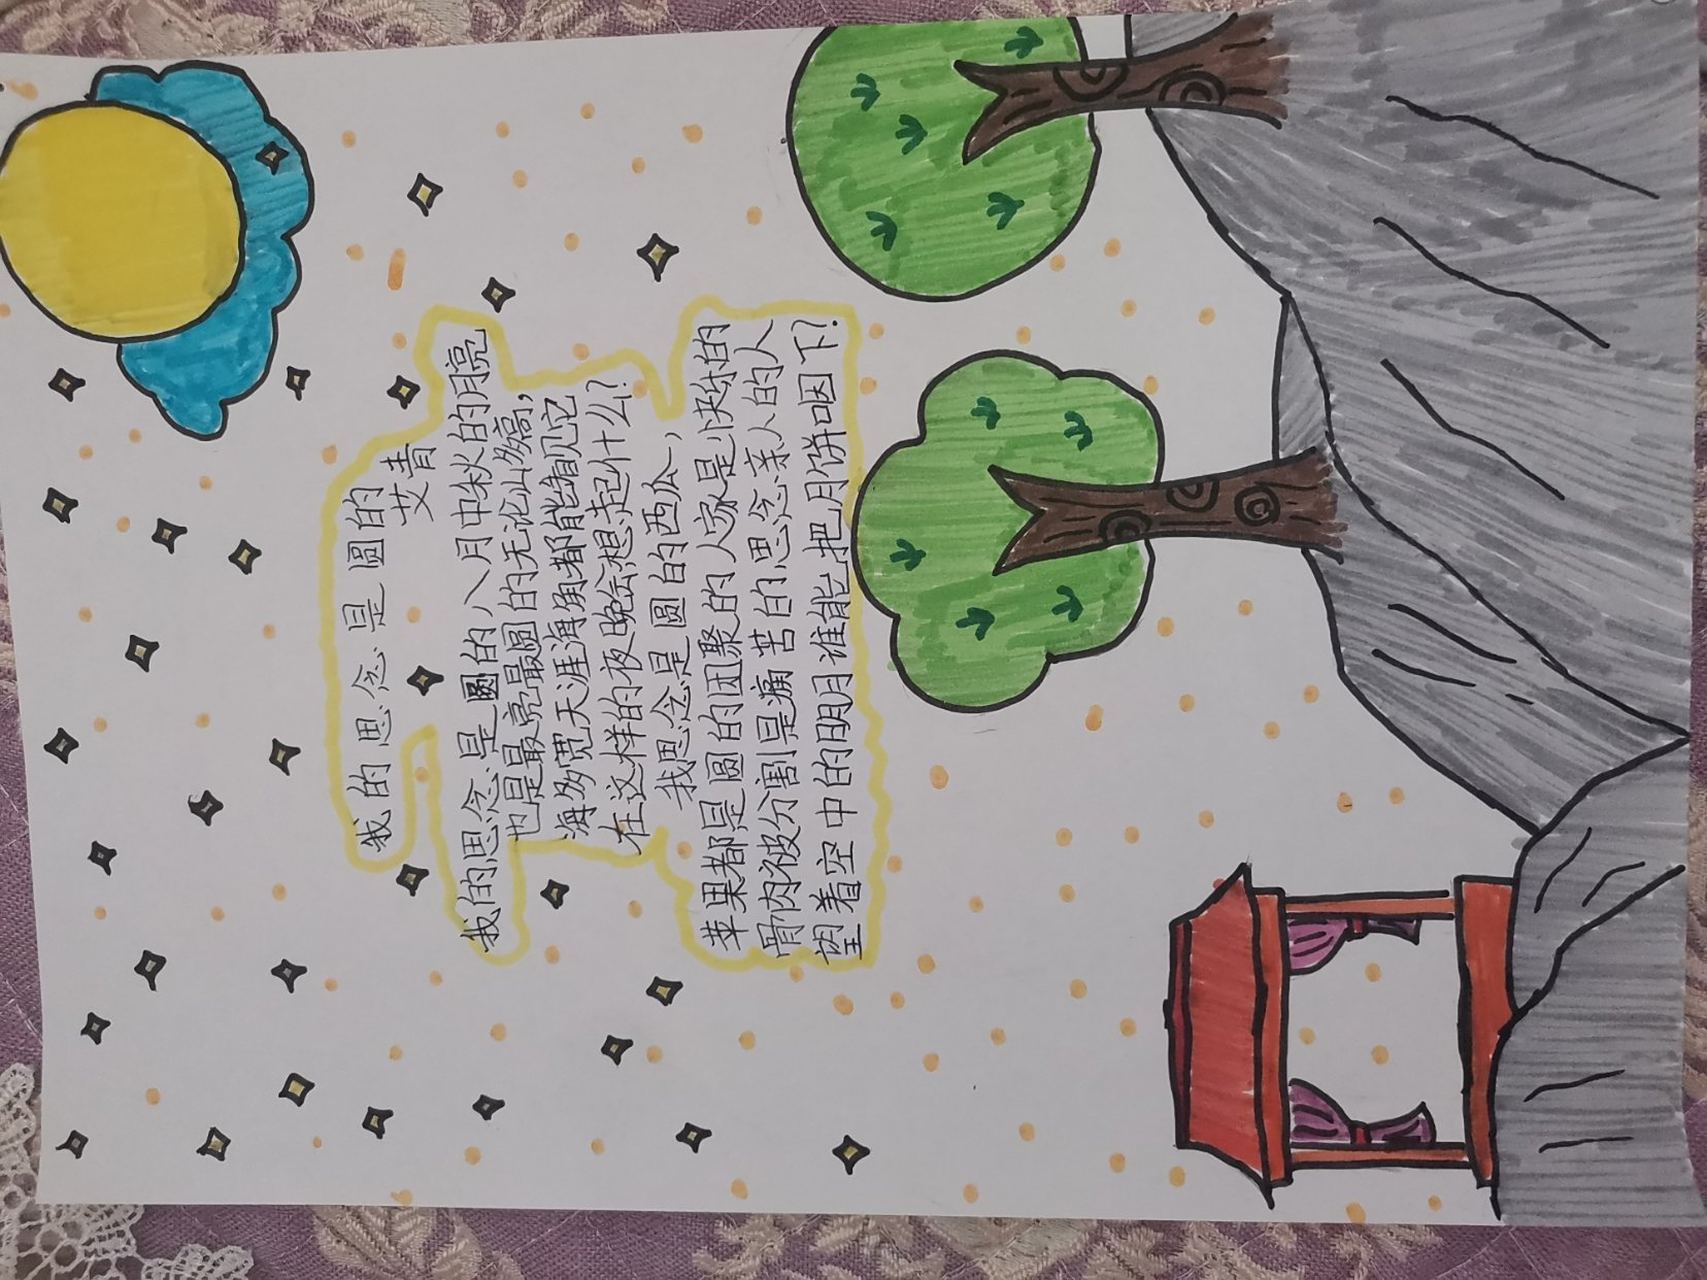 我的思念是圆的
艾青
我的思念是圆的八月中秋的月亮
也是最亮最圆的无论山多高,
海多宽天涯海角都能看见它
在这样的夜晚会想起什么?
我思念是圆的西瓜,
苹果都是圆的团聚的人家是快乐的
骨肉被分割是痛苦的思念亲人的人
望着空中的明月谁能把月饼咽下!